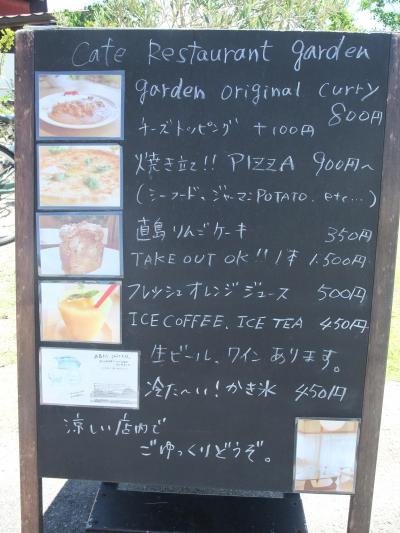 Cafe Restaurant garden
garden original curry
800円
チーズトッピング +100円
焼き立て!! PIZZA 900円〜
(シーフード、ジャーマンPOTATO. etc...)
直島りんごケーキ 350円
TAKE OUT OK!! 1本 1.500円
フレッシュオレンジジュース 500円
ICE COFFEE. ICE TEA 450円
生ビール、ワインあります。
冷た〜い!かき氷 450円
涼しい店内で
ごゆっくりどうぞ。